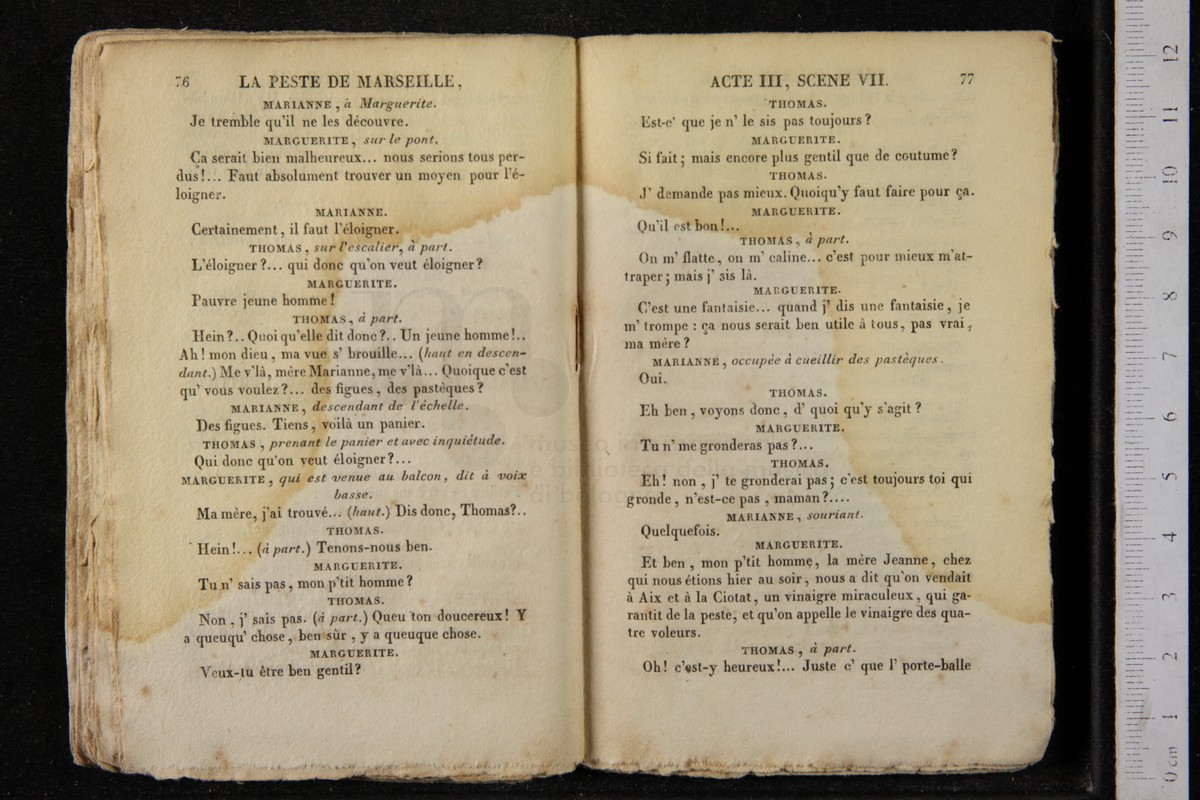 76 LA PESTE DE MARSEILLE,
MARIANNE, à Marguerite.
Je tremble qu'il ne les découvre.
MARGUERITE, sur le pont.
Ça serait bien malheureux... nous serions tous per-
dus!... Faut absolument trouver un moyen pour l'é-
loigner.
MARIANNE.
Certainement, il faut l'éloigner.
THOMAS, sur l'escalier, à part.
L'éloigner?... qui donc qu'on veut éloigner?
MARGUERITE.
Pauvre jeune homme!
THOMAS, à part.
Hein?.. Quoi qu'elle dit donc?.. Un jeune homme!..
Ah! mon dieu, ma vue s' brouille... (haut en descen-
dant.) Me v'là, mère Marianne, me v'là... Quoique c'est
qu' vous voulez?... des figues, des pastèques?
MARIANNE, descendant de l'échelle.
Des figues. Tiens, voilà un panier.
THOMAS, prenant le panier et avec inquiétude.
Qui donc qu'on veut éloigner?...
MARGUERITE, qui est venue au balcon, dit à voix
basse.
Ma mère, j'ai trouvé... (haut.) Dis donc, Thomas?..
THOMAS.
Hein!... (à part.) Tenons-nous ben.
MARGUERITE.
Tu n' sais pas, mon p'tit homme?
THOMAS.
Non, j' sais pas. (à part.) Queu ton doucereux! Y
a queuqu' chose, ben sûr, y a queuque chose.
MARGUERITE.
Veux-tu être ben gentil?
ACTE III, SCENE VII. 77
THOMAS.
Est-c' que je n' le sis pas toujours?
MARGUERITE.
Si fait; mais encore plus gentil que de coutume?
THOMAS.
J' demande pas mieux. Quoiqu'y faut faire pour ça.
MARGUERITE.
Qu'il est bon!...
THOMAS, à part.
On m' flatte, on m' caline... c'est pour mieux m'at-
traper; mais j' sis là.
MARGUERITE.
C'est une fantaisie... quand j' dis une fantaisie, je
m' trompe : ça nous serait ben utile à tous, pas vrai,
ma mère?
MARIANNE, occupée à cueillir des pastèques.
Oui.
THOMAS.
Eh ben, voyons donc, d' quoi qu'y s'agit?
MARGUERITE.
Tu n' me gronderas pas?...
THOMAS.
Eh! non, j' te gronderai pas; c'est toujours toi qui
gronde, n'est-ce pas, maman?....
MARIANNE, souriant.
Quelquefois.
MARGUERITE.
Et ben, mon p'tit homme, la mère Jeanne, chez
qui nous étions hier au soir, nous a dit qu'on vendait
à Aix et à la Ciotat, un vinaigre miraculeux, qui ga-
rantit de la peste, et qu'on appelle le vinaigre des qua-
tre voleurs.
THOMAS, à part.
Oh! c'est-y heureux!... Juste c' que l' porte-balle
0 cm 1 2 3 4 5 6 7 8 9 10 11 12